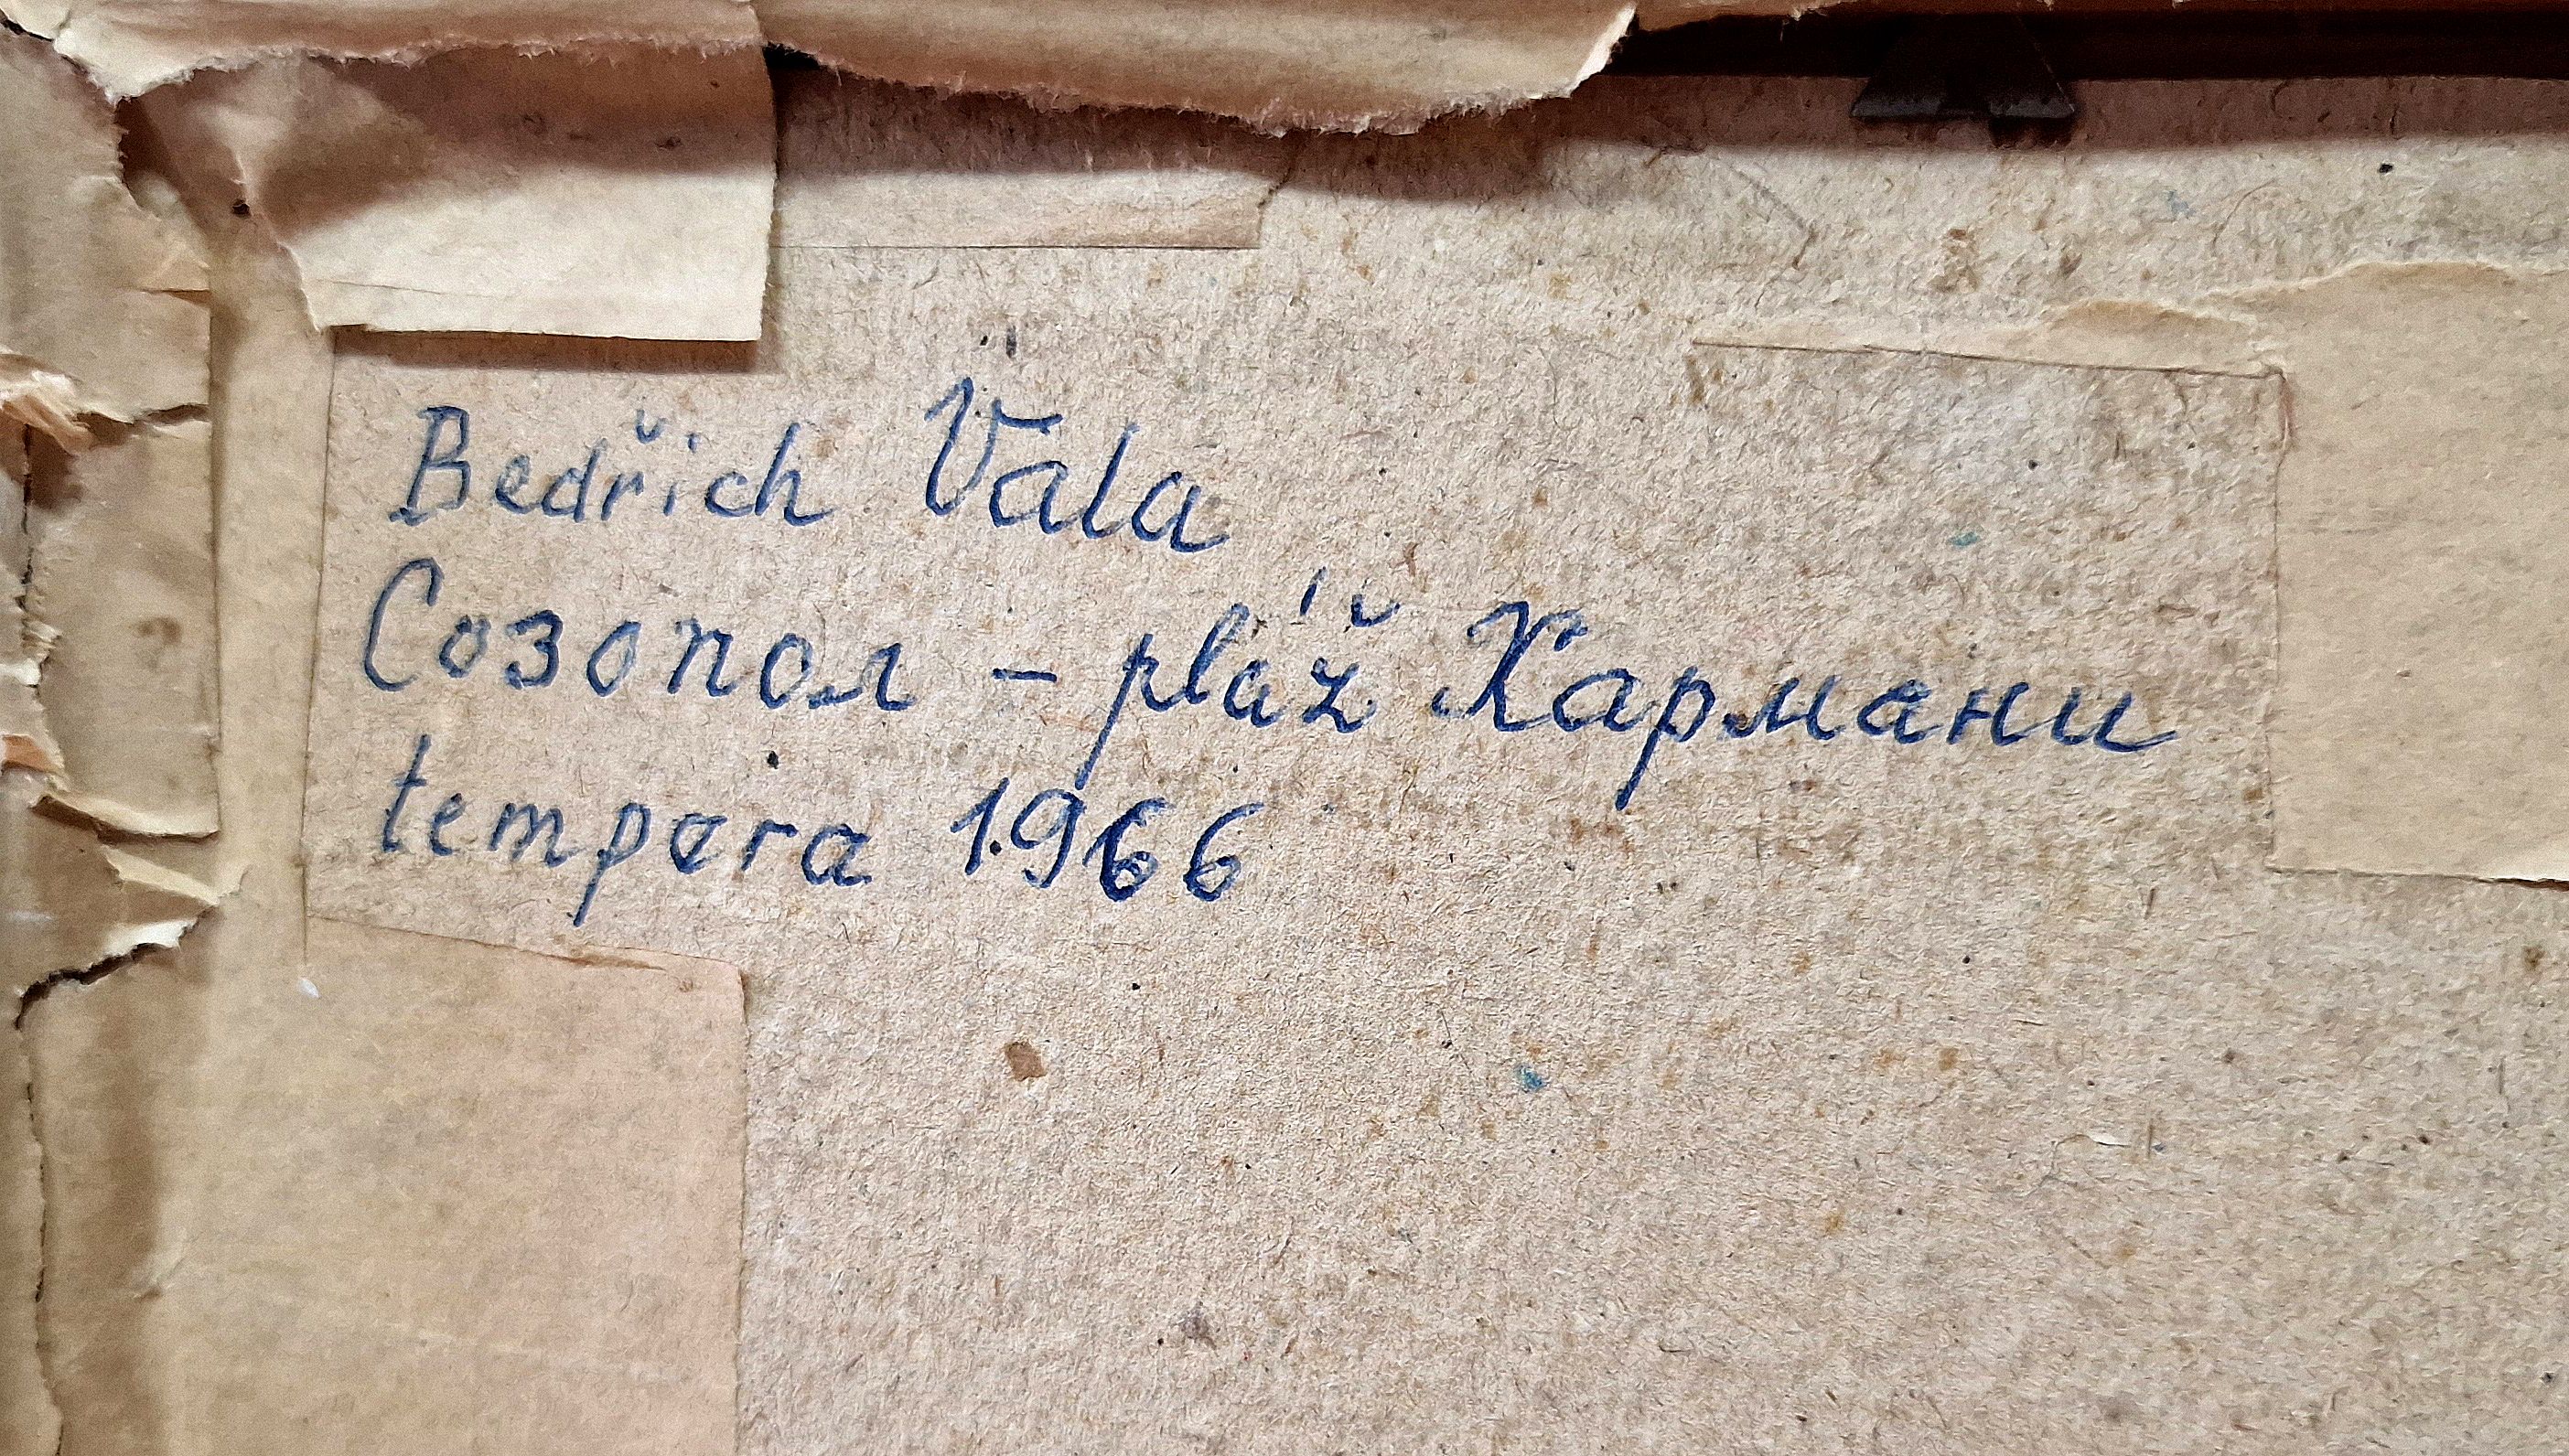 Bedřich Vala
Созопол - pláž Хармани
tempera 1966